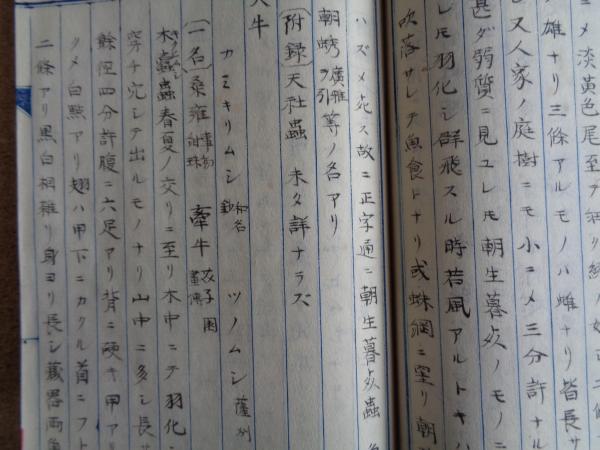 メ淡黄色尾至テ
雄ナリ三條アルモノハ雌ナリ皆長サ
ス人家ノ庭樹ニモ小ニメ三分許ナル
甚ダ弱質ニ見ユレモ朝生暮死ノモノニ
レモ羽化シ群飛スル時若風アルトキハ
吹落サレテ魚食トナリ或蛛網ニ罜リ朝
ハズメ死ス故ニ正字通ニ朝生暮死蟲
朝蜏廣雅ヲ引等ノ名アリ
附録 天社蟲 未タ詳ナラズ
天牛
カミキリムシ 和名鈔 ツノムシ 薩州
一名 桑雍 牽牛
木蠹蟲春夏ノ交リニ至リ木中ニテ羽化シ
穿チ穴シテ出ルモノナリ山中ニ多シ長サ
餘徑四分許腹ニ六足アリ背ニ硬キ甲ア
クメ白點アリ翅ハ甲下ニカクル首ニフト
二條アリ黒白相雜リ身ヨリ長シ藏器両角